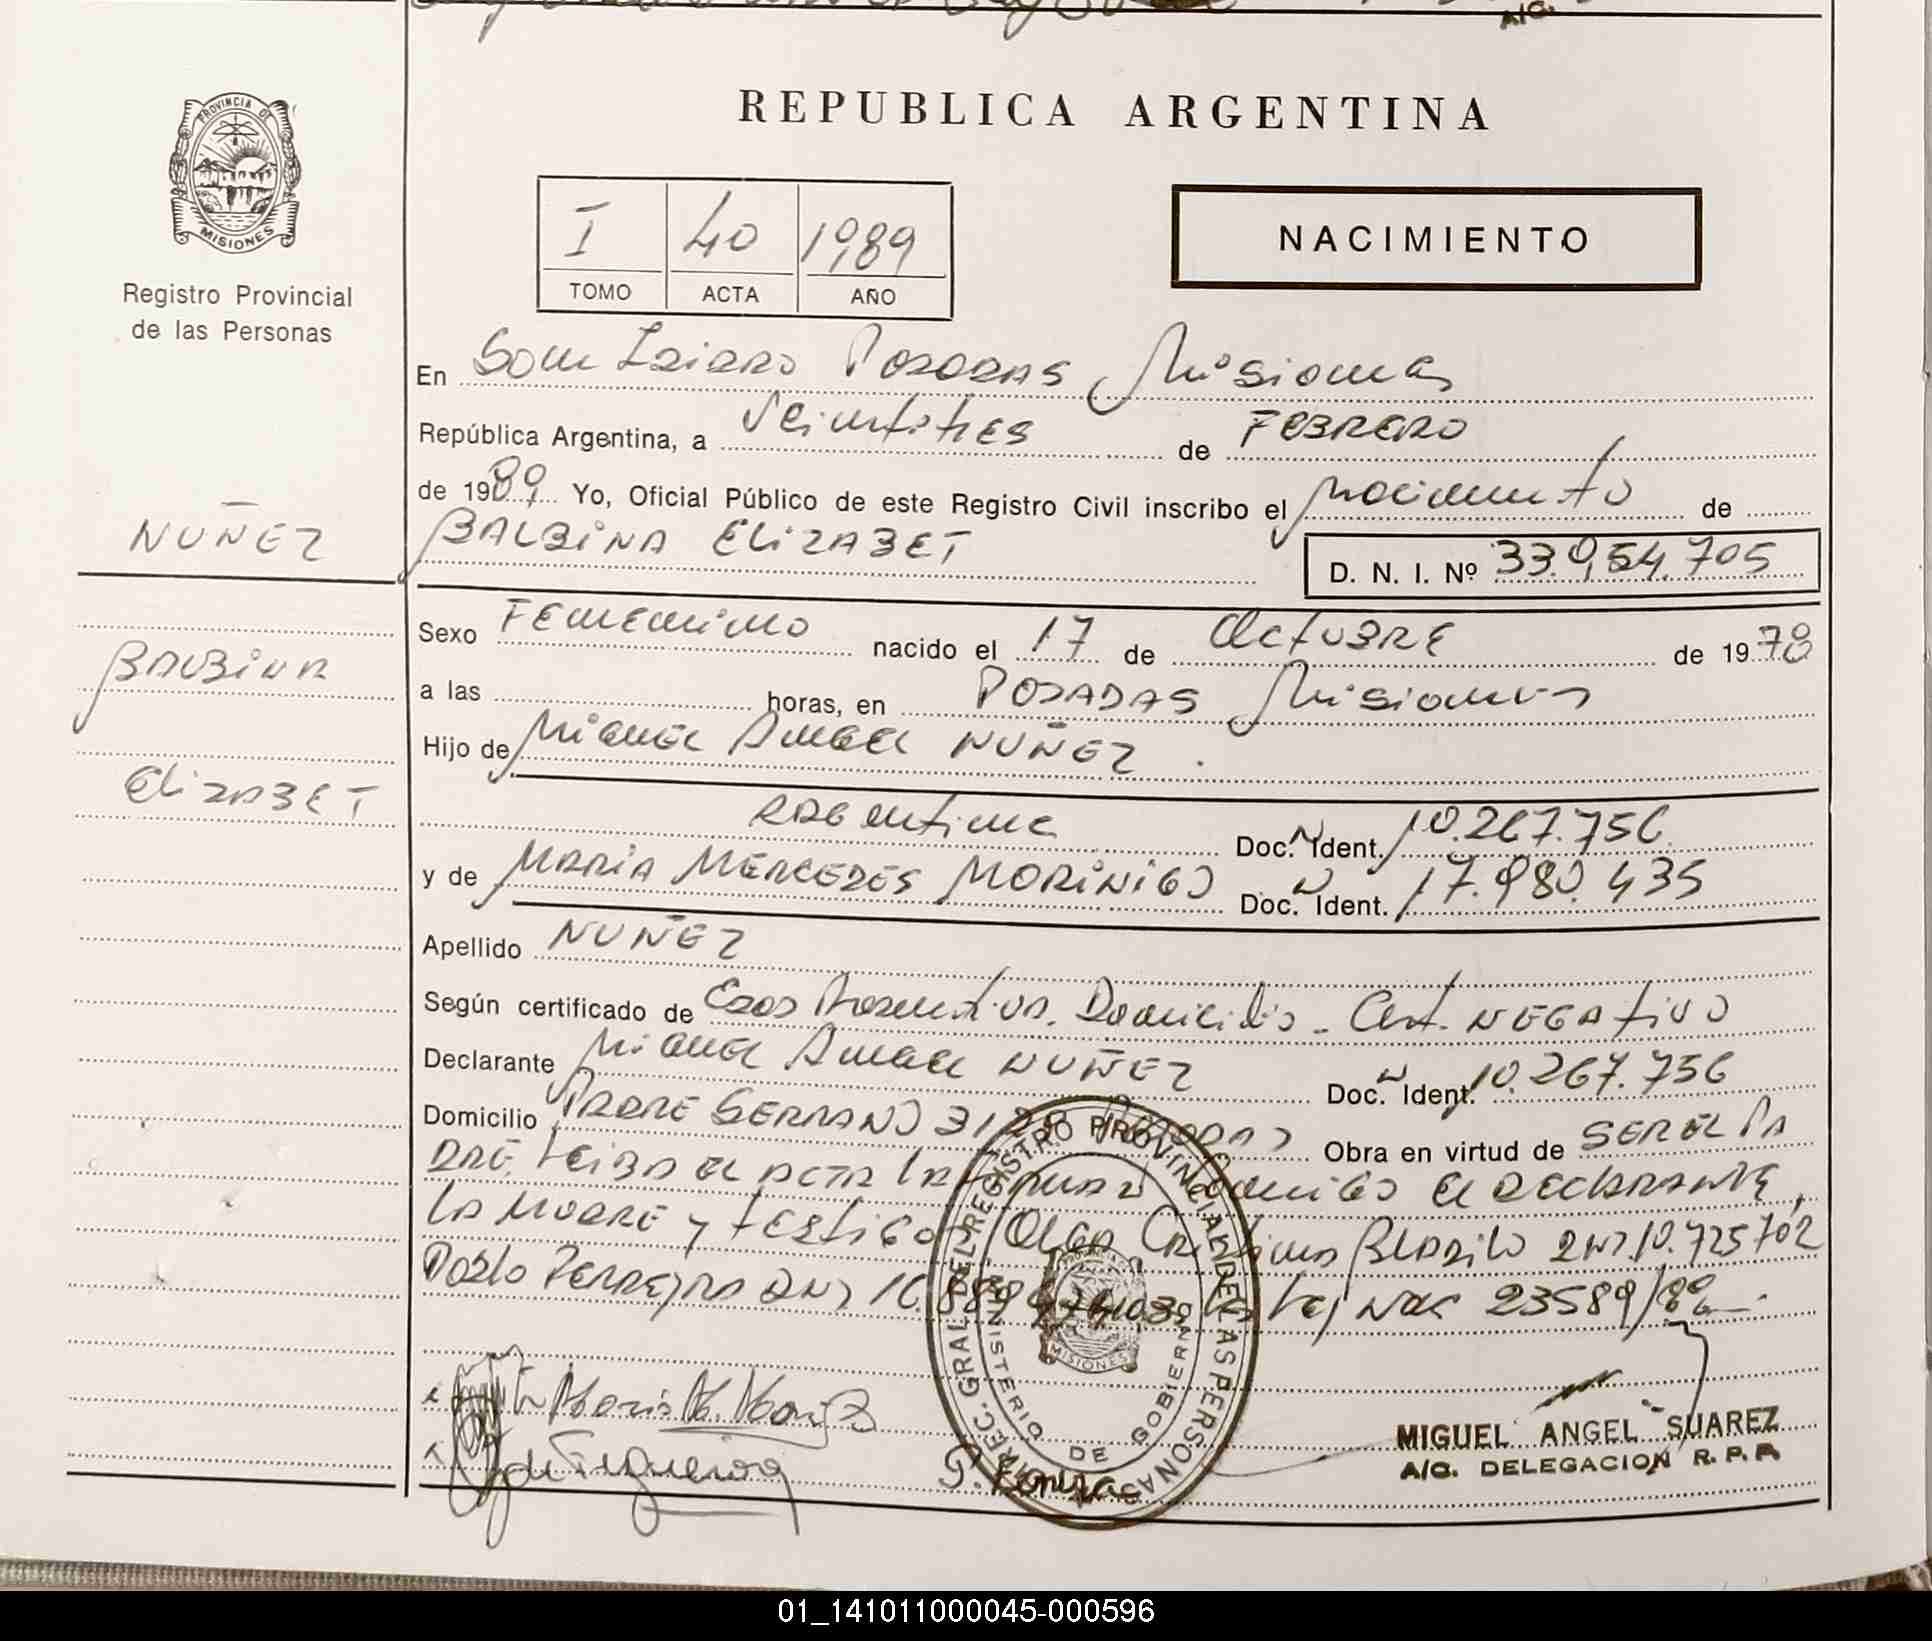 A/C.
REPUBLICA ARGENTINA
PROVINCIA DE
MISIONES
Registro Provincial
de las Personas
I 40 1989
TOMO ACTA AÑO
NACIMIENTO
En San Isidro Posadas Misiones
República Argentina, a Veintitres de FEBRERO
de 1989 Yo, Oficial Público de este Registro Civil inscribo el nacimiento de
NUÑEZ
BALBINA ELIZABET
D. N. I. Nº 33.954.705
Sexo FEMENINO nacido el 17 de OCTUBRE de 1978
BALBINA
a las horas, en POSADAS Misiones
Hijo de MIGUEL ANGEL NUÑEZ
ELIZABET
ARGENTINA Doc. N Ident. 10.267.756
y de MARIA MERCEDES MORINIGO Doc. N Ident. 17.980.435
Apellido NUÑEZ
Según certificado de Edad Presuntiva. Domicilio - Cert. NEGATIVO
Declarante MIGUEL ANGEL NUÑEZ Doc. N Ident. 10.267.756
Domicilio PADRE SERRANO Posadas Obra en virtud de SER EL PA
DRE, Leida el acta la firman conmigo el declarante,
la madre y testigos Olga Cristina 10.725702
Pablo Ferreyra DNI 16. 23589/82
DIREC. GRAL. DEL REGISTRO PROVINCIAL DE LAS PERSONAS
MINISTERIO DE GOBIERNO
MISIONES
MIGUEL ANGEL SUAREZ
A/C. DELEGACION R. P. P.
01_141011000045-000596